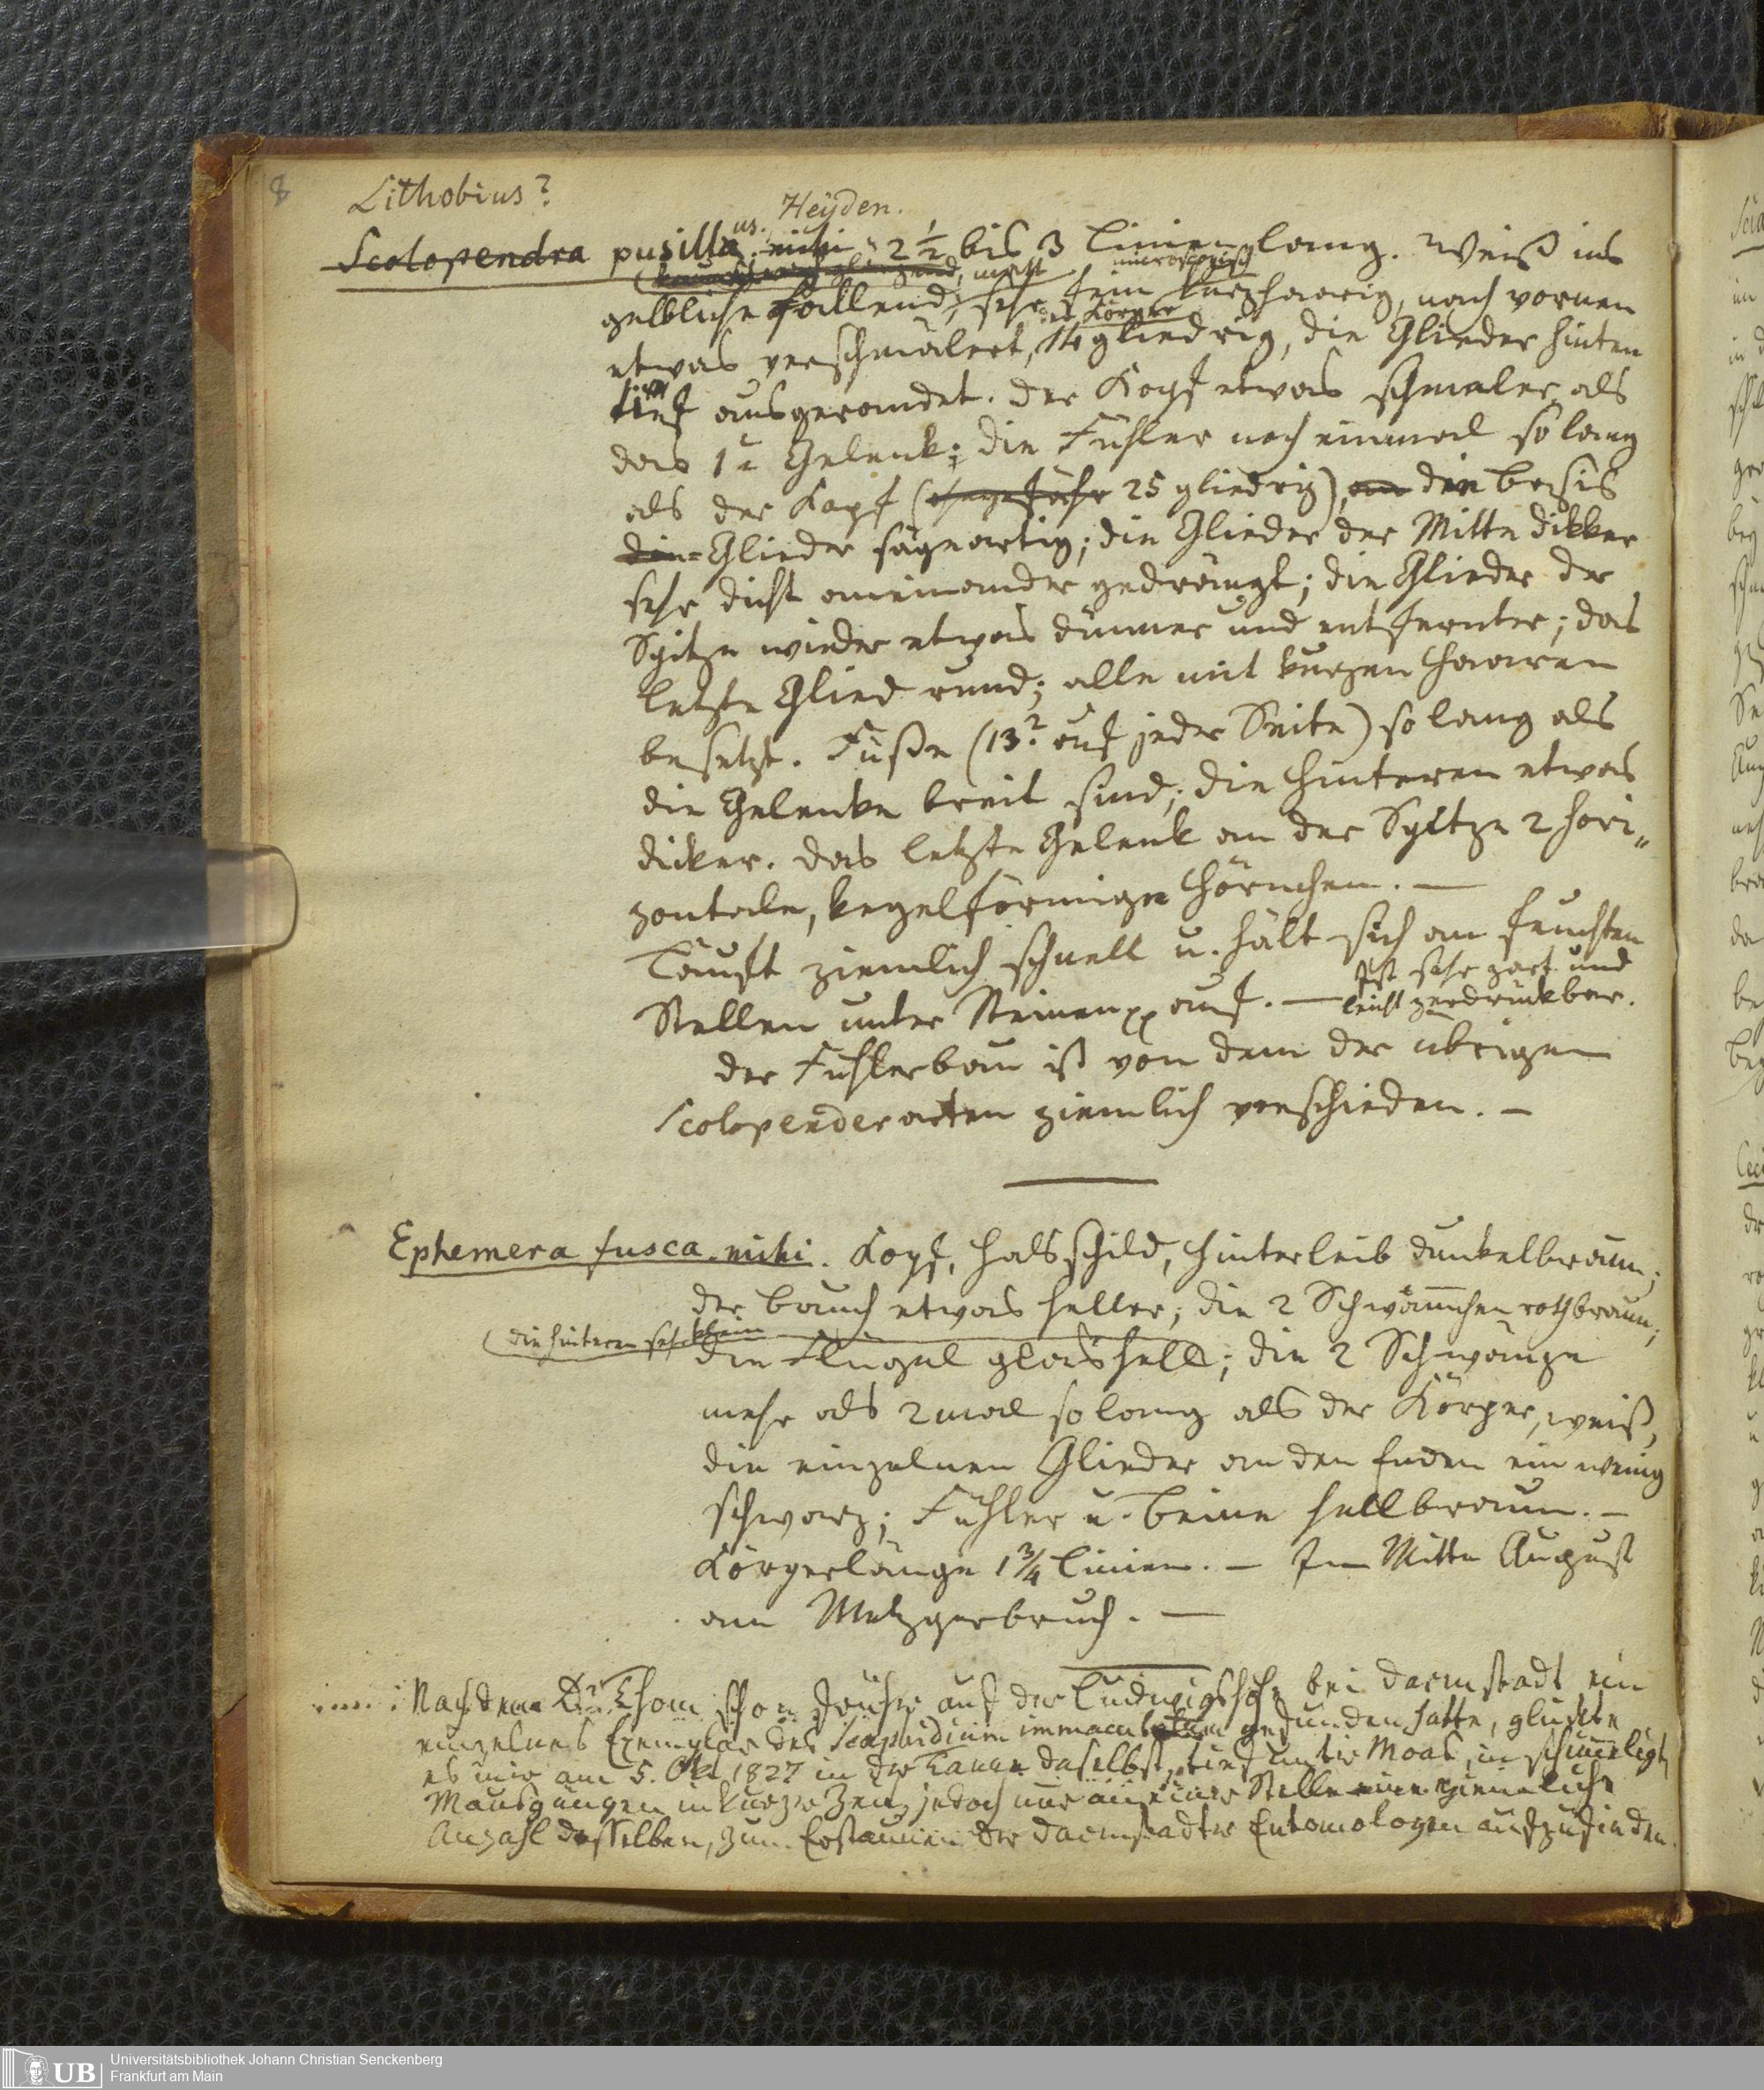 8
Lithobius?
Heÿden.
Scolopendra pusilla us. mihi. 2 1/2 bis 3 Linien lang. Weiß ins
matt microscopisch
gelbliche fallend, sehr fein kurzhaarig, nach vornen
der Körper
etwas verschmälert, gliedrig, die Glieder hinten
tief ausgerandet. Der Kopf etwas schmaler als
das 1te Gelenk; die Fühler noch einmal so lang
als der Kopf (ohngefähr 25 gliedrig), an den Basis
die Glieder sägeartig; die Glieder der Mitte dikker
sehr dicht aneinander gedrängt; die Glieder der
Spitze wieder etwas dünner und entfernter; das
letzte Glied rund; alle mit kurzen Haaren
besetzt. Füße (13? auf jeder Seite) so lang als
die Gelenke breit sind; die hinteren etwas
dicker. Das letzte Gelenk an der Spitze 2 hori„
zontale, kegelförmige Hörnchen. —
Läuft ziemlich schnell u. hält sich an feuchten
Ist sehr zart und
Stellen unter Steinen auf. — leicht zerdrückbar.
Der Fühlerbau ist von dem der übrigen
Scolopenderarten ziemlich verschieden. —
Ephemera fusca. mihi. Kopf, Halsschild, Hinterleib dunkelbraun;
der Bauch etwas heller; die 2 Schwämmchen rothbraun;
die hinteren sehr klein
die Flügel glashell; die 2 Schwänze
mehr als 2mal so lang als der Körper, weiß,
die einzelnen Glieder an den Enden ein wenig
schwarz; Fühler u. Beine hellbraun. —
Körperlänge 1 3/4 Linien. — In Mitte August
am Metzgerbruch. —
Nachdem Dr. Thom schon früher auf der Ludwigshöhe bei Darmstadt ein
einzelnes Exemplar des Scapidium immaculatum gefunden hatte, glückte
es mir am 5. Okt 1827 in der Tanne daselbst, tief unter Moos, in schimmligten
Mausgängen in kurzer Zeit, jedoch nur an einer Stelle eine ziemliche
Anzahl desselben, zum Erstaunen der Darmstadter Entomologen aufzufinden.
Universitätsbibliothek Johann Christian Senckenberg
UB Frankfurt am Main